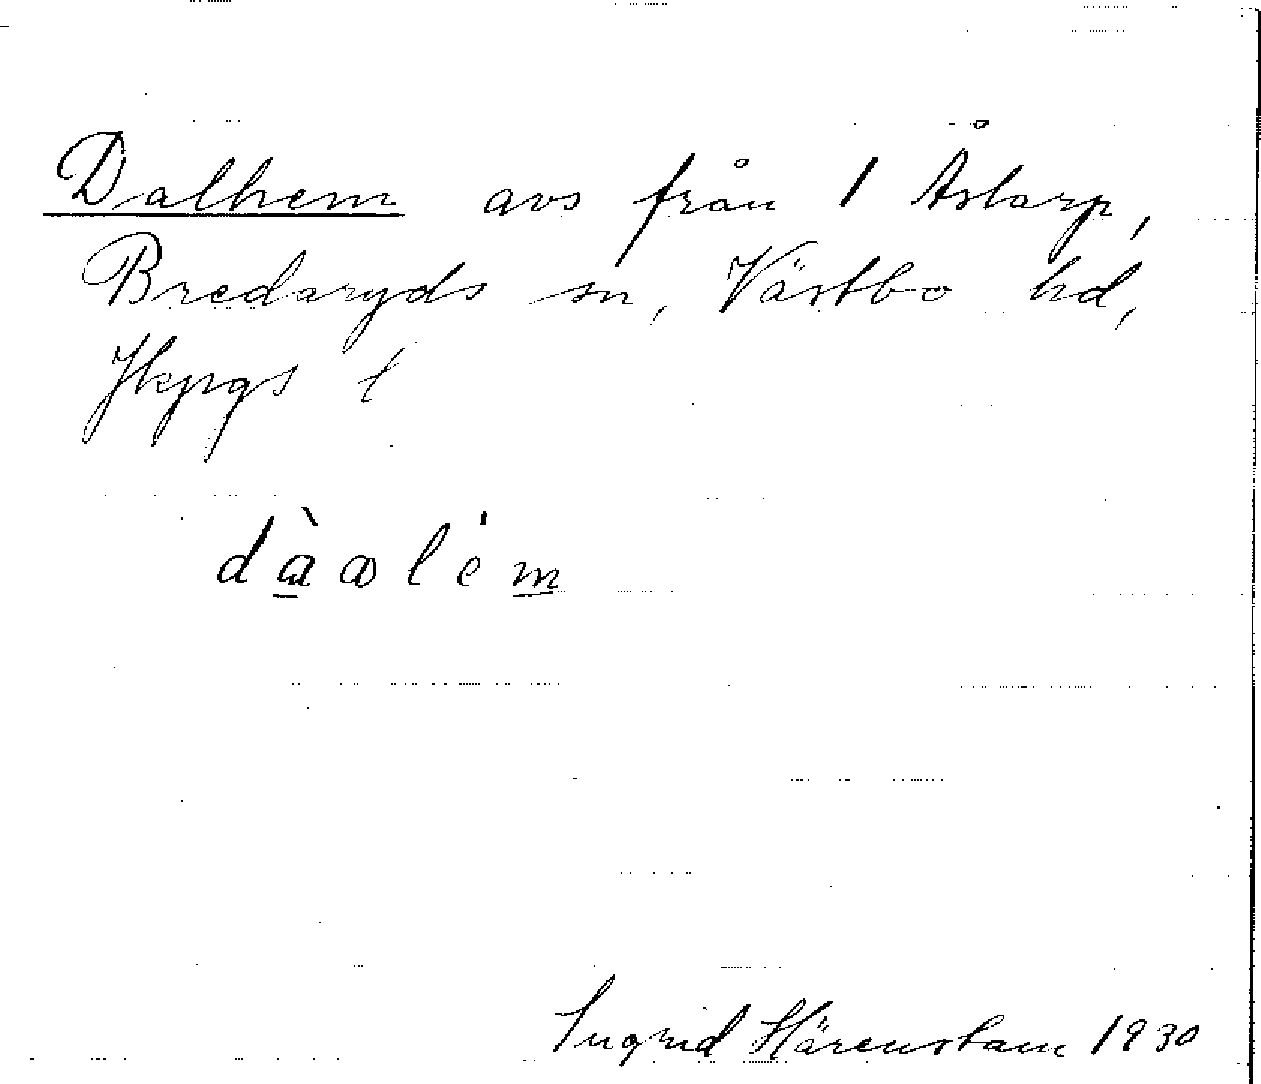 Dalhem avs från 1 Åstarp,
Bredaryds sn, Västbo hd,
Jkpgs l
dàalem
Ingrid Härenstam 1930